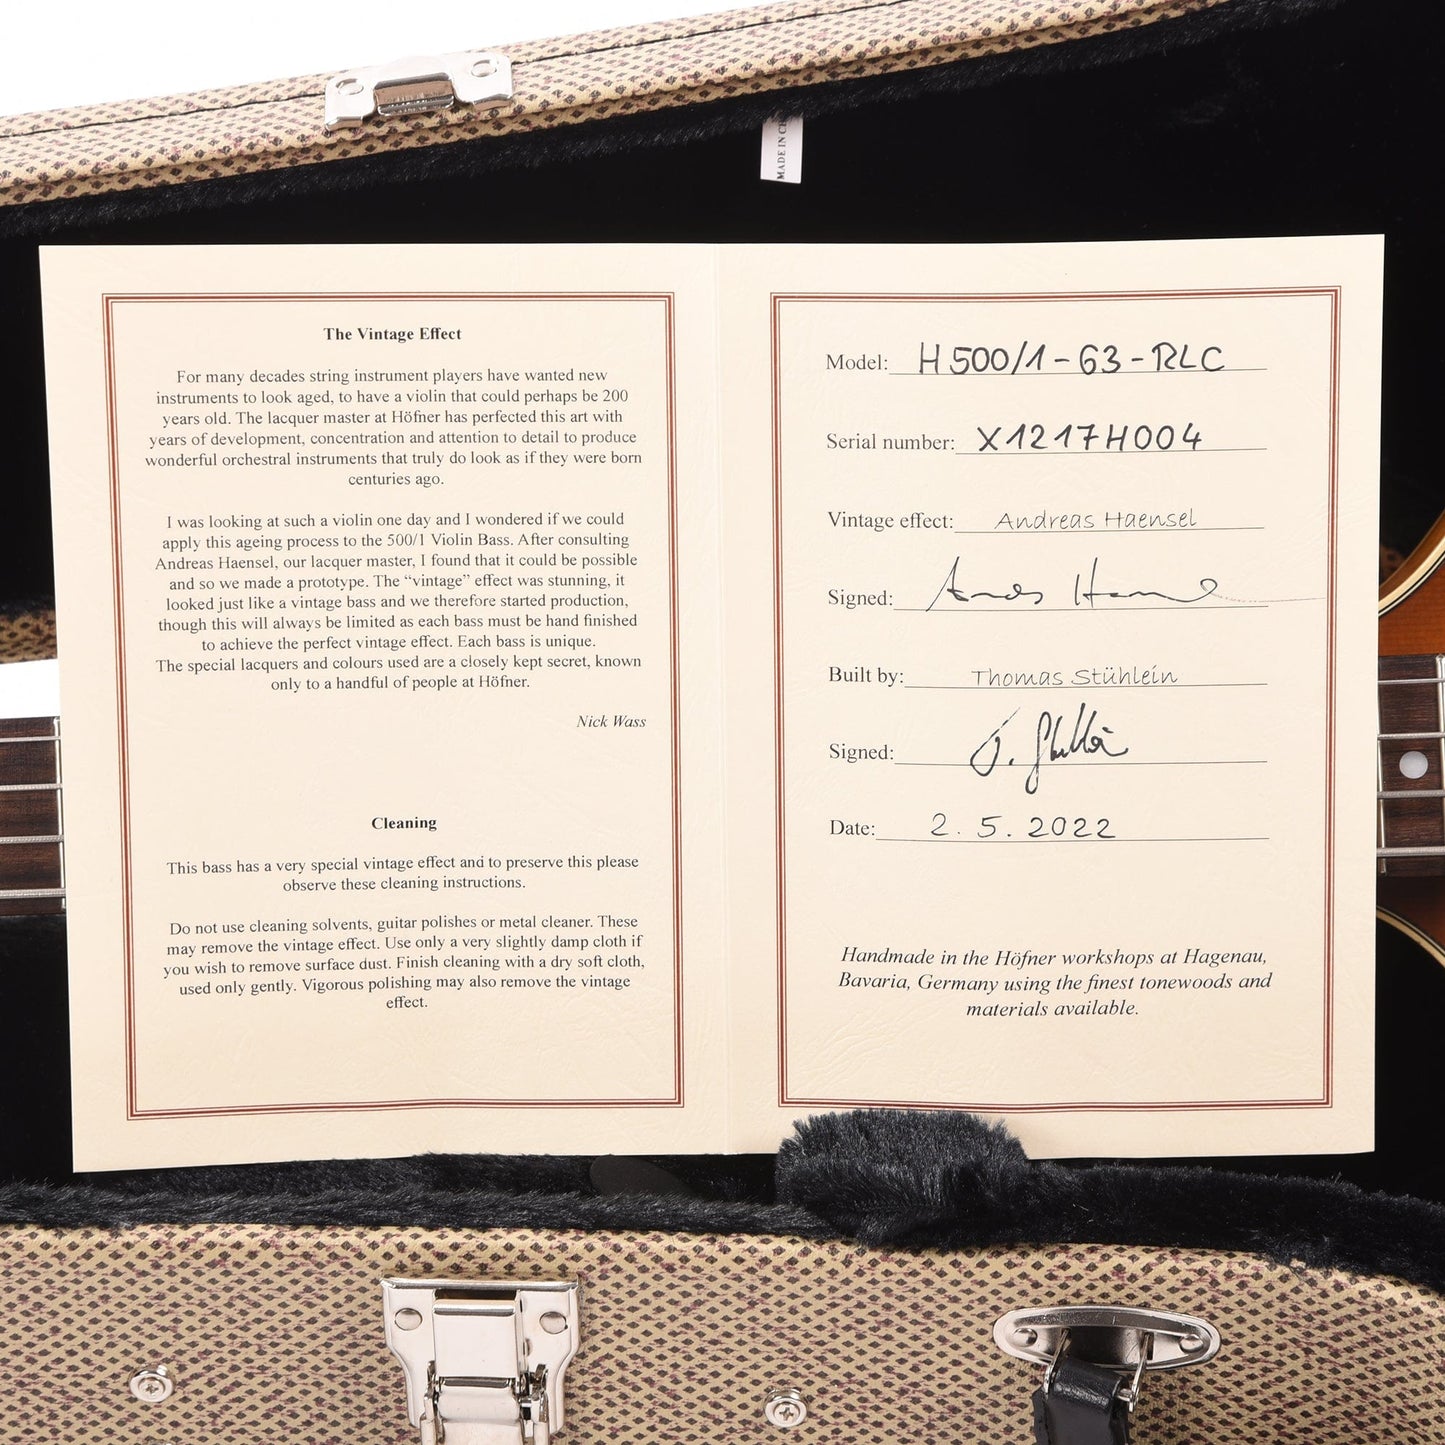 MADE IN CH
The Vintage Effect
For many decades string instrument players have wanted new
instruments to look aged, to have a violin that could perhaps be 200
years old. The lacquer master at Höfner has perfected this art with
years of development, concentration and attention to detail to produce
wonderful orchestral instruments that truly do look as if they were born
centuries ago.
I was looking at such a violin one day and I wondered if we could
apply this ageing process to the 500/1 Violin Bass. After consulting
Andreas Haensel, our lacquer master, I found that it could be possible
and so we made a prototype. The “vintage” effect was stunning, it
looked just like a vintage bass and we therefore started production,
though this will always be limited as each bass must be hand finished
to achieve the perfect vintage effect. Each bass is unique.
The special lacquers and colours used are a closely kept secret, known
only to a handful of people at Höfner.
Nick Wass
Cleaning
This bass has a very special vintage effect and to preserve this please
observe these cleaning instructions.
Do not use cleaning solvents, guitar polishes or metal cleaner. These
may remove the vintage effect. Use only a very slightly damp cloth if
you wish to remove surface dust. Finish cleaning with a dry soft cloth,
used only gently. Vigorous polishing may also remove the vintage
effect.
Model: H500/1-63-RLC
Serial number: X1217H004
Vintage effect: Andreas Haensel
Signed:
Built by: Thomas Stühlein
Signed:
Date: 2.5.2022
Handmade in the Höfner workshops at Hagenau,
Bavaria, Germany using the finest tonewoods and
materials available.